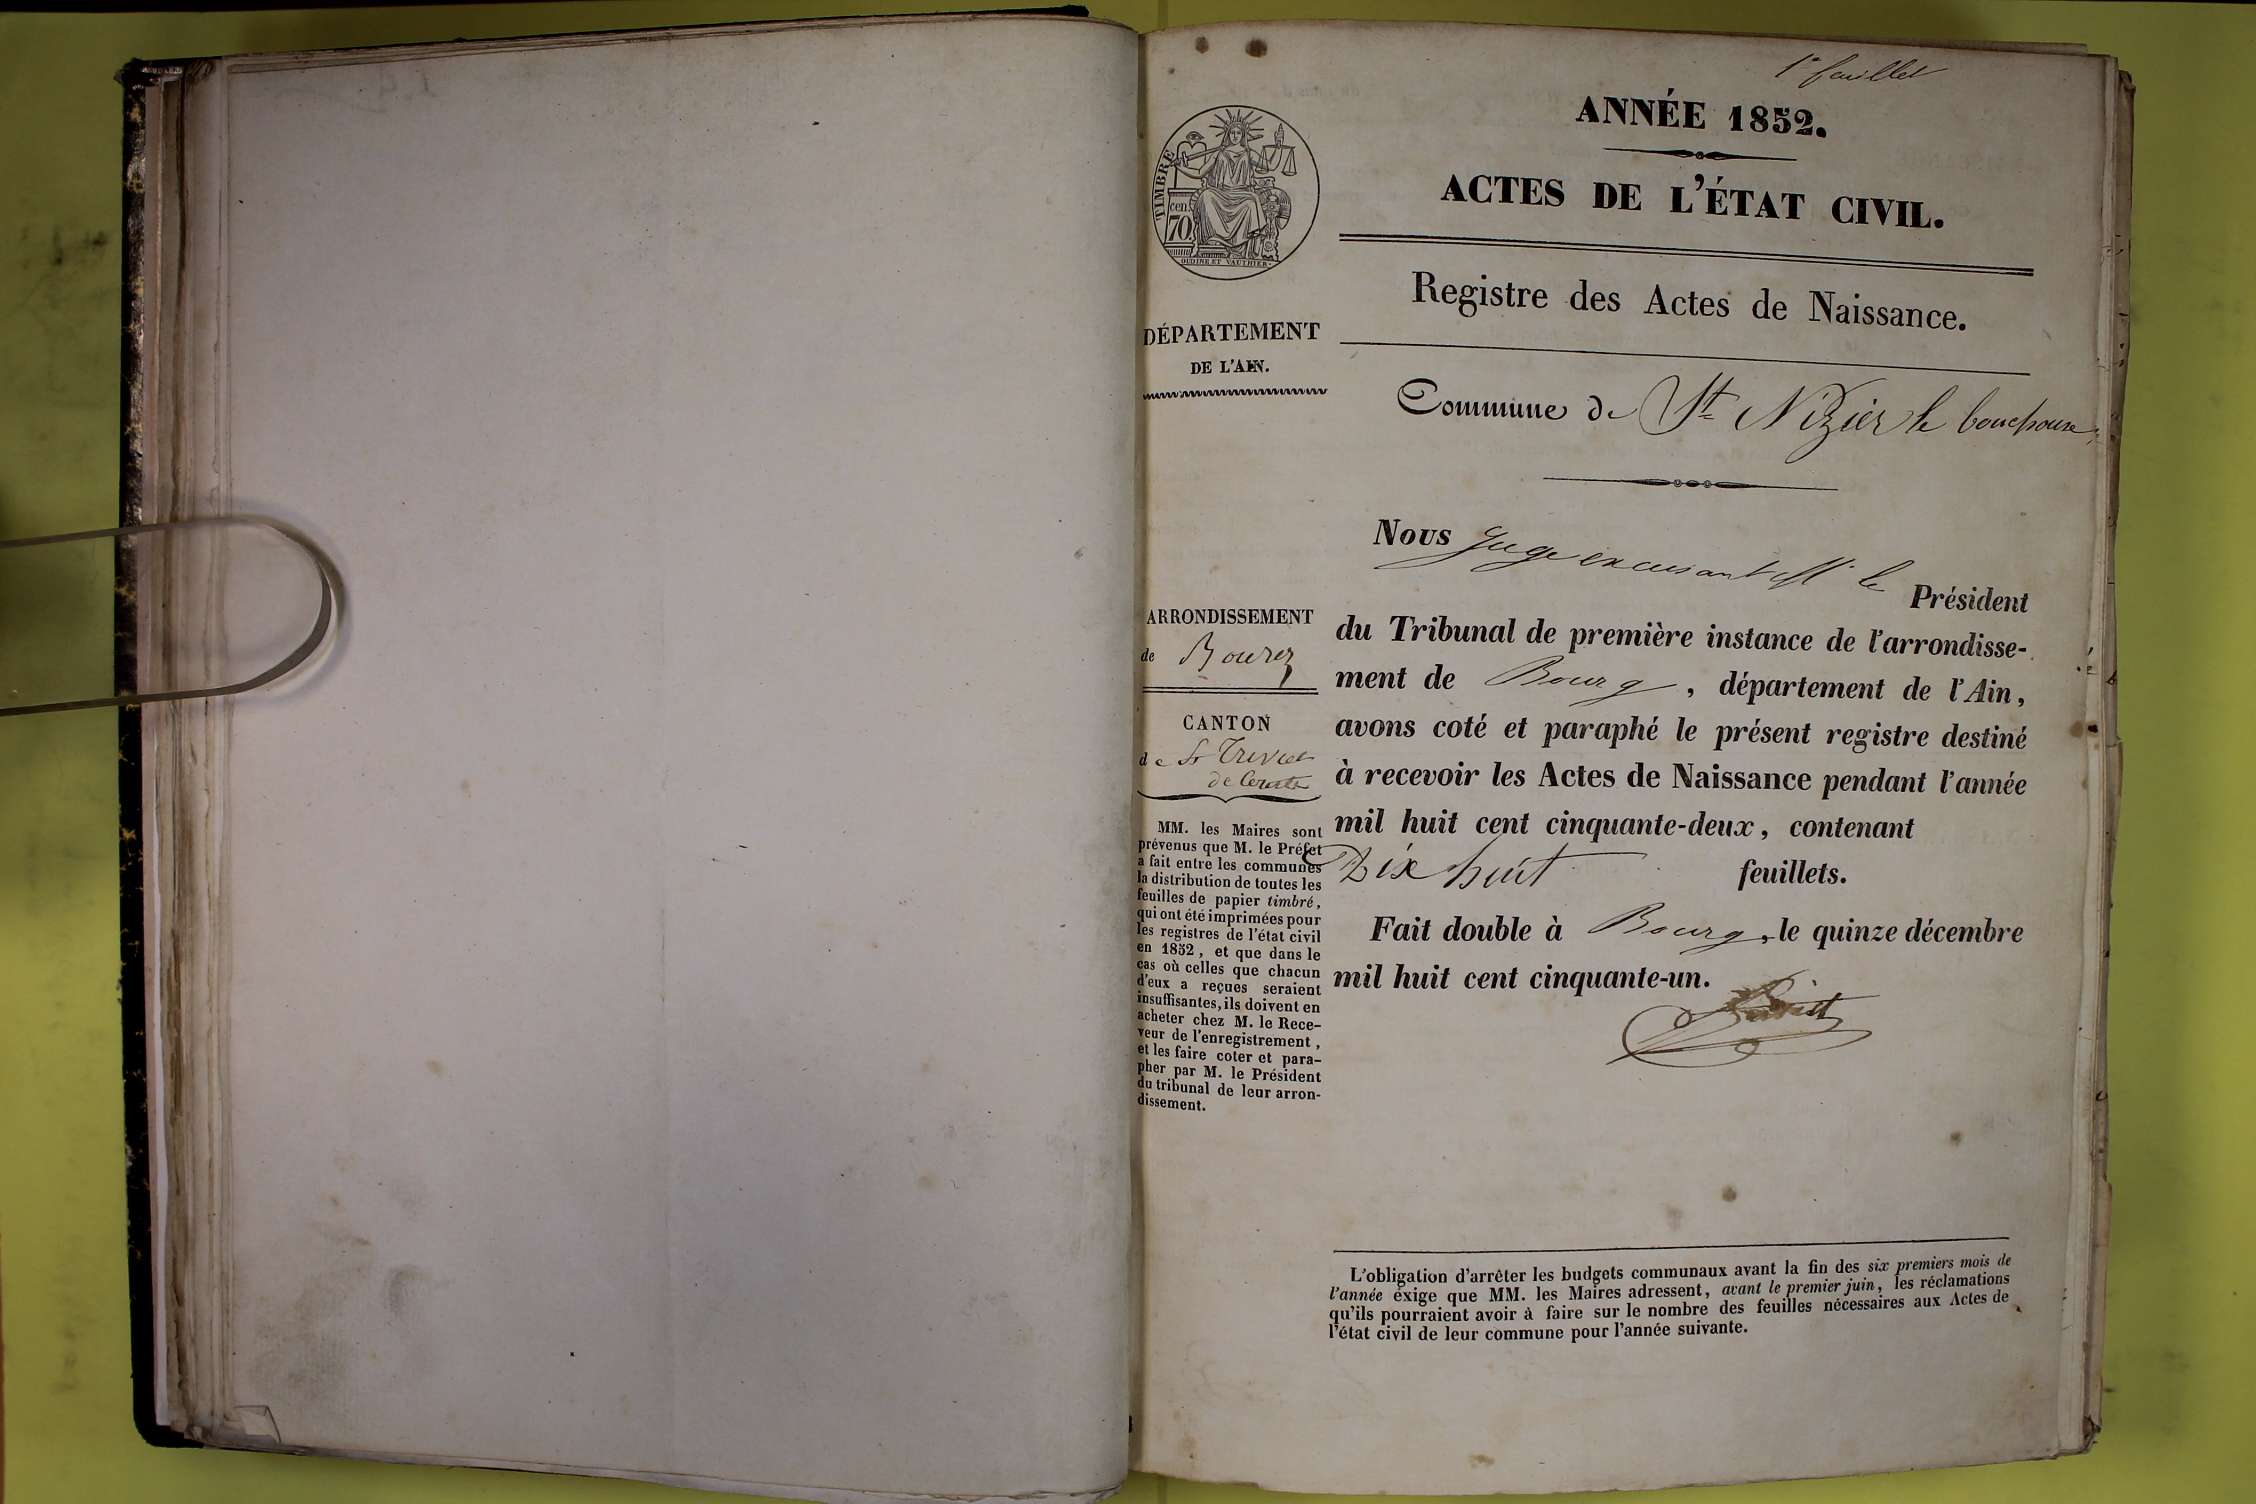 1er feuillet
ANNÉE 1852.
ACTES DE L'ÉTAT CIVIL.
TIMBRE
cen.
70
OUDINE ET VAUTHIER.
Registre des Actes de Naissance.
DÉPARTEMENT
DE L'AIN.
Commune de St Nizier le bouchoux
Nous Juge excusant Mr le Président
du Tribunal de première instance de l'arrondisse-
ment de Bourg, département de l'Ain,
avons coté et paraphé le présent registre destiné
à recevoir les Actes de Naissance pendant l'année
mil huit cent cinquante-deux, contenant
Dix huit feuillets.
Fait double à Bourg, le quinze décembre
mil huit cent cinquante-un.
ARRONDISSEMENT
de Bourg
CANTON
de St Trivier
de Courtes
MM. les Maires sont
prévenus que M. le Préfet
a fait entre les communes
la distribution de toutes les
feuilles de papier timbré,
qui ont été imprimées pour
les registres de l'état civil
en 1852, et que dans le
cas où celles que chacun
d'eux a reçues seraient
insuffisantes, ils doivent en
acheter chez M. le Rece-
veur de l'enregistrement,
et les faire coter et para-
pher par M. le Président
du tribunal de leur arron-
dissement.
L'obligation d'arrêter les budgets communaux avant la fin des six premiers mois de
l'année exige que MM. les Maires adressent, avant le premier juin, les réclamations
qu'ils pourraient avoir à faire sur le nombre des feuilles nécessaires aux Actes de
l'état civil de leur commune pour l'année suivante.